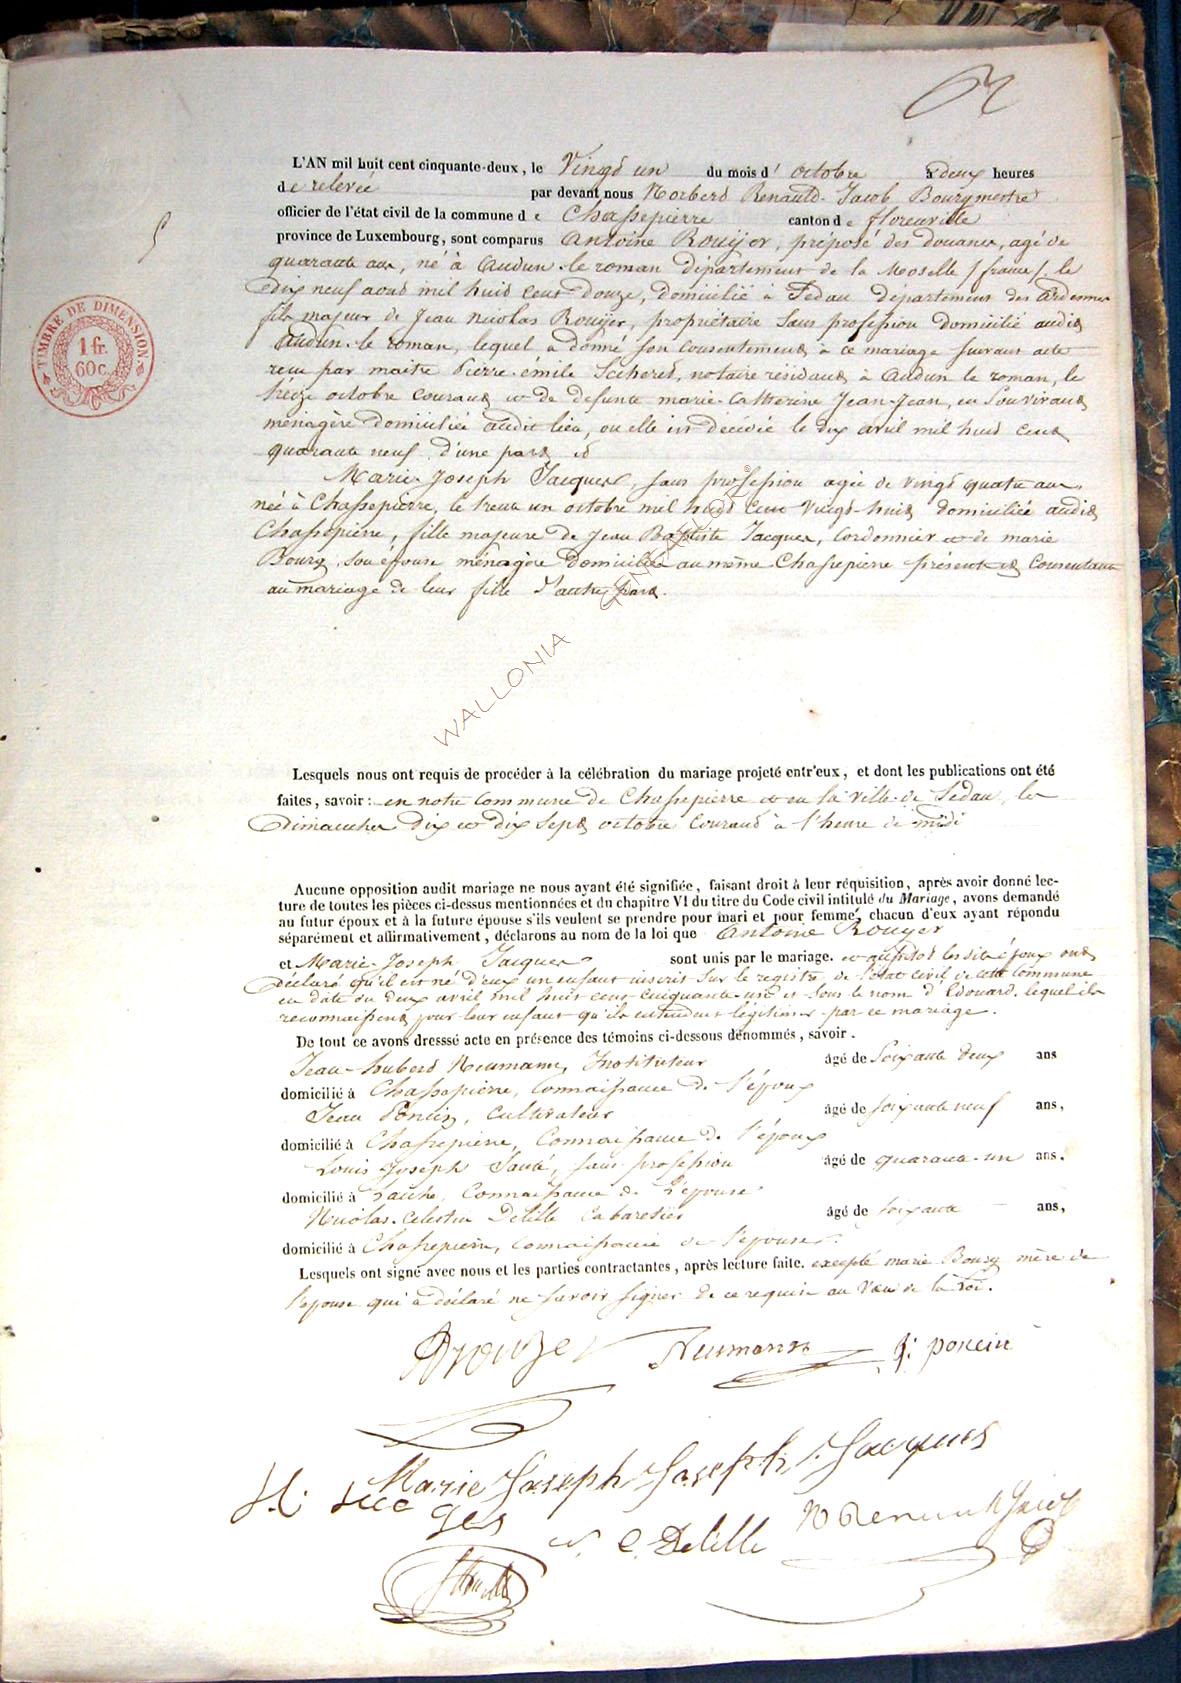 L'AN mil huit cent cinquante-deux, le Vingt un du mois d' octobre à deux heures
de relevée par devant nous Norbert Renauld-Jacob Bourgmestre
officier de l'état civil de la commune de Chassepierre canton de florenville
province de Luxembourg, sont comparus Antoine Rouyer, préposé des douanes, agé de
quarante ans, né à Audun-le roman département de la Moselle /france/ le
dix neuf aout mil huit cent douze, domicilié à Sedan département des ardennes
fils majeur de Jean Nicolas Rouyer, propriétaire sans profession domicilié audit
Audun-le roman, lequel a donné son consentement à ce mariage suivant acte
reçu par maitre Pierre-émile notaire résidant à Audun le roman, le
treize octobre courant et de defunte marie-Catherine Jean-Jean, en son vivant
ménagère domiciliée audit lieu, ou elle est décédée le dix avril mil huit cent
quarante neuf d'une part et
Marie-Joseph Jacques, sans profession agée de vingt quatre ans
née à Chassepierre, le trente un octobre mil huit cent vingt-huit domiciliée audit
Chassepierre, fille majeure de Jean Baptiste Jacques, Cordonnier et de marie
Bourg, son épouse ménagère domiciliés au même Chassepierre présents et consentant
au mariage de leur fille d'autre part.
Lesquels nous ont requis de procéder à la célébration du mariage projeté entr'eux, et dont les publications ont été
faites, savoir: en notre commune de Chassepierre et en la ville de Sedan, les
Dimanches dix et dix sept octobre courant à l'heure de midi
Aucune opposition audit mariage ne nous ayant été signifiée, faisant droit à leur réquisition, après avoir donné lec-
ture de toutes les pièces ci-dessus mentionnées et du chapitre VI du titre du Code civil intitulé du Mariage, avons demandé
au futur époux et à la future épouse s'ils veulent se prendre pour mari et pour femme, chacun d'eux ayant répondu
séparément et affirmativement, déclarons au nom de la loi que Antoine Rouyer
et Marie-Joseph Jacques sont unis par le mariage. et aussitot lesdits époux ont
déclaré qu'il est né d'eux un enfant inscrit sur le registre de l'état civil de cette commune
en date du deux avril mil huit cent cinquante-un et sous le nom d'Edouard. lequel ils
reconnaissent pour leur enfant qu'ils entendent légitimer par ce mariage.
De tout ce avons dresssé acte en présence des témoins ci-dessous dénommés, savoir.
Jean-hubert Neumann, Instituteur âgé de soixante deux ans
domicilié à Chassepierre, Connaissance de l'époux
Jean Poncin, Cultivateur âgé de soixante neuf ans,
domicilié à Chassepierre, Connaissance de l'époux
Louis Joseph sans profession âgé de quarante-un ans.
domicilié à Laiche, Connaissance de l'épouse
Nicolas-Celestin Delille Cabaretier âgé de soixante ans,
domicilié à Chassepierre, Connaissance de l'épouse.
Lesquels ont signé avec nous et les parties contractantes, après lecture faite. excepté marie Bourg mère de
l'épouse qui a déclaré ne savoir signer de ce requise au vœu de la loi.
ARouyer Neumann J: poncin
Marie Joseph Joseph Jacques
N C Delille N Renauld Jacob
TIMBRE DE DIMENSION
1 fr.
60 c.
WALLONIA GENEALOGY